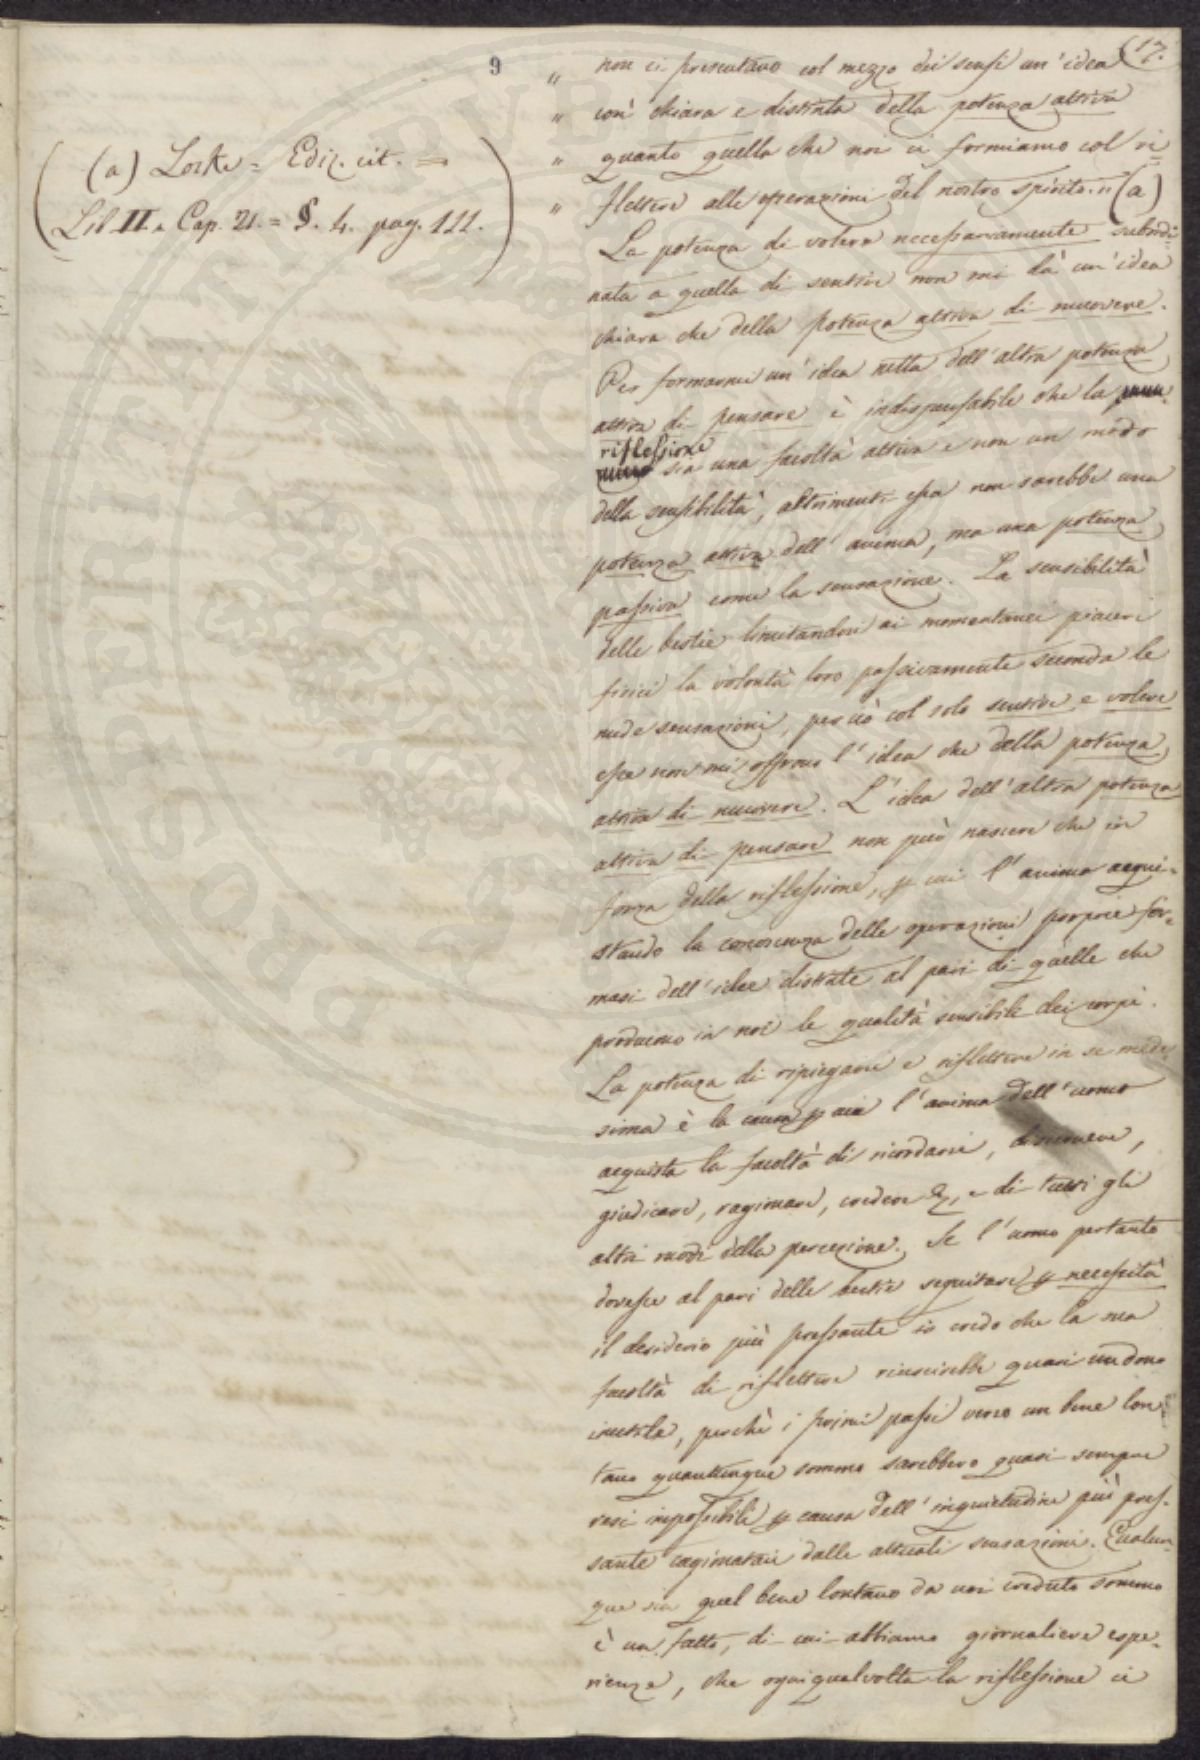 9
(17.
(a) Locke = Ediz. cit. =
Lib. II. Cap. 21. = §. 4. pag. 111.
" non ci presentano col mezzo dei sensi un' idea
" così chiara e distinta della potenza attiva
" quanto quella che noi ci formiamo col ri
" flettere alle operazioni del nostro spirito. " (a)
La potenza di volere necessariamente subordi
nata a quella di sentire non mi dà un' idea
chiara che della potenza attiva di muovere.
Per formarmi un' idea netta dell' altra potenza
attiva di pensare è indispensabile che la
riflessione
sia una facoltà attiva e non un modo
della sensibilità, altrimenti essa non sarebbe una
potenza attiva dell' anima, ma una potenza
passiva come la sensazione. La sensibilità
delle bestie limitandosi ai momentanei piaceri
fisici la volontà loro passivamente seconda le
nude sensazioni, perciò col solo sentire e volere
esse non mi offrono l' idea che della potenza
attiva di muovere. L' idea dell' altra potenza
attiva di pensare non può nascere che in
forza della riflessione, p cui l' anima acqui-
stando la conoscenza delle operazioni proprie for-
masi dell' idee distinte al pari di quelle che
producono in noi le qualità sensibili dei corpi.
La potenza di ripiegarsi e riflettere in se mede
sima è la causa p cui l' anima dell' uomo
acquista la facoltà di ricordarsi, discernere,
giudicare, ragionare, credere &, e di tutti gli
altri modi della percezione. Se l' uomo pertanto
dovesse al pari delle bestie seguitare p necessità
il desiderio più pressante io credo che la sua
facoltà di riflettere riuscirebbe quasi un dono
inutile, perchè i primi passi verso un bene lon
tano quantunque sommo sarebbero quasi sempre
resi impossibili p causa dell' inquietudine più pres-
sante cagionataci dalle attuali sensazioni. Qualun-
que sia quel bene lontano da noi creduto sommo
è un fatto, di cui abbiamo giornaliere espe-
rienze, che ogniqualvolta la riflessione ci